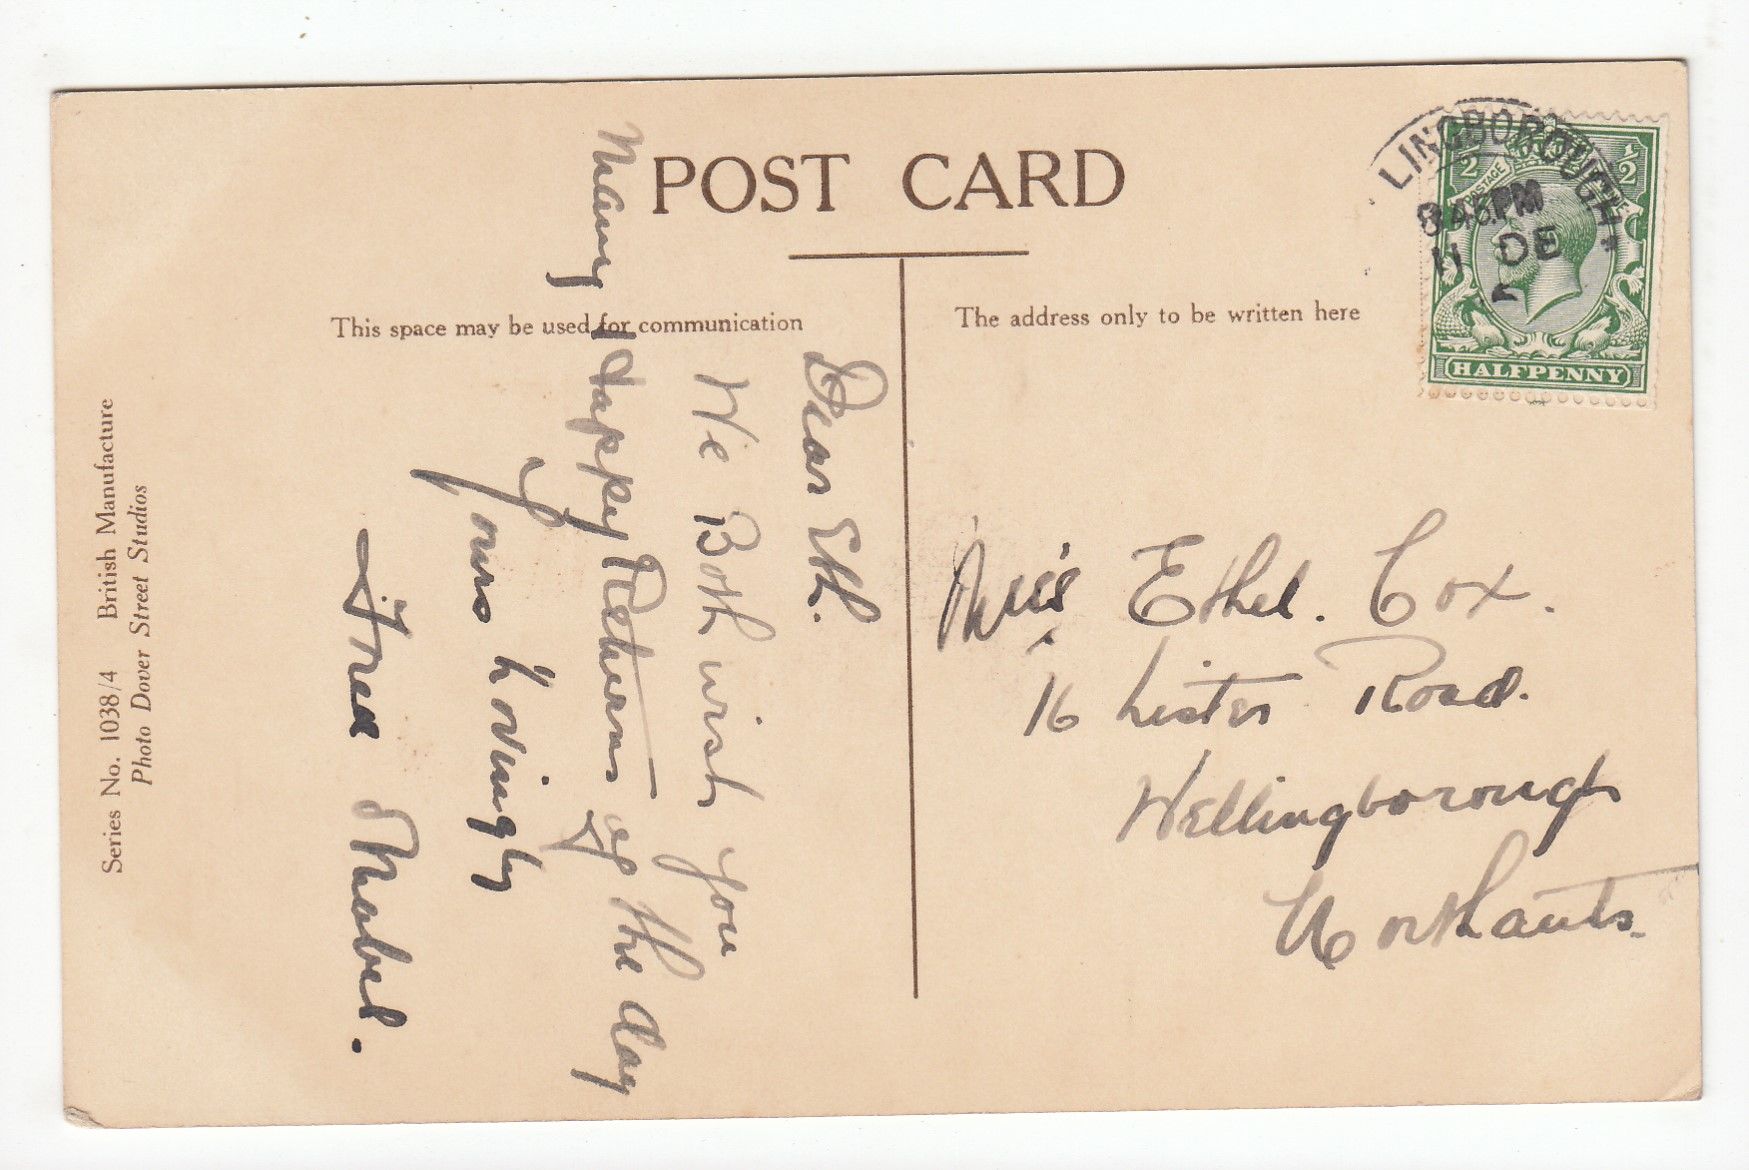 POST CARD
This space may be used for communication
The address only to be written here
Dear Eth.
We Both wish you
Many Happy Returns of the day
Yours Lovingly
Fred & Mabel.
Miss Ethel. Cox.
16 Lister Road.
Wellingborough
Northants.
LINGBOROUGH
8 45 PM
11 DE
½ ½
POSTAGE
HALFPENNY
Series No. 1038/4 British Manufacture
Photo Dover Street Studios